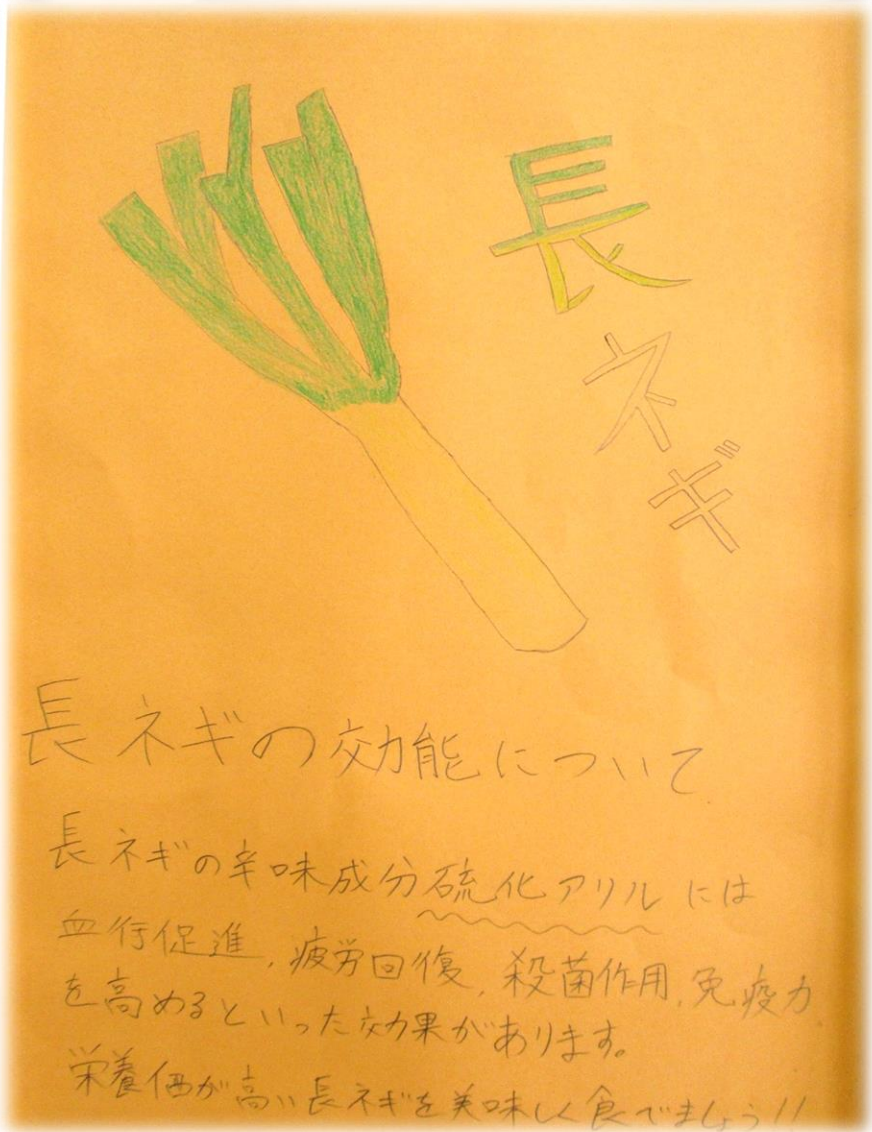 長ネギ
長ネギの効能について
長ネギの辛味成分硫化アリルには
血行促進、疲労回復、殺菌作用、免疫力
を高めるといった効果があります。
栄養価が高い長ネギを美味しく食べましょう!!